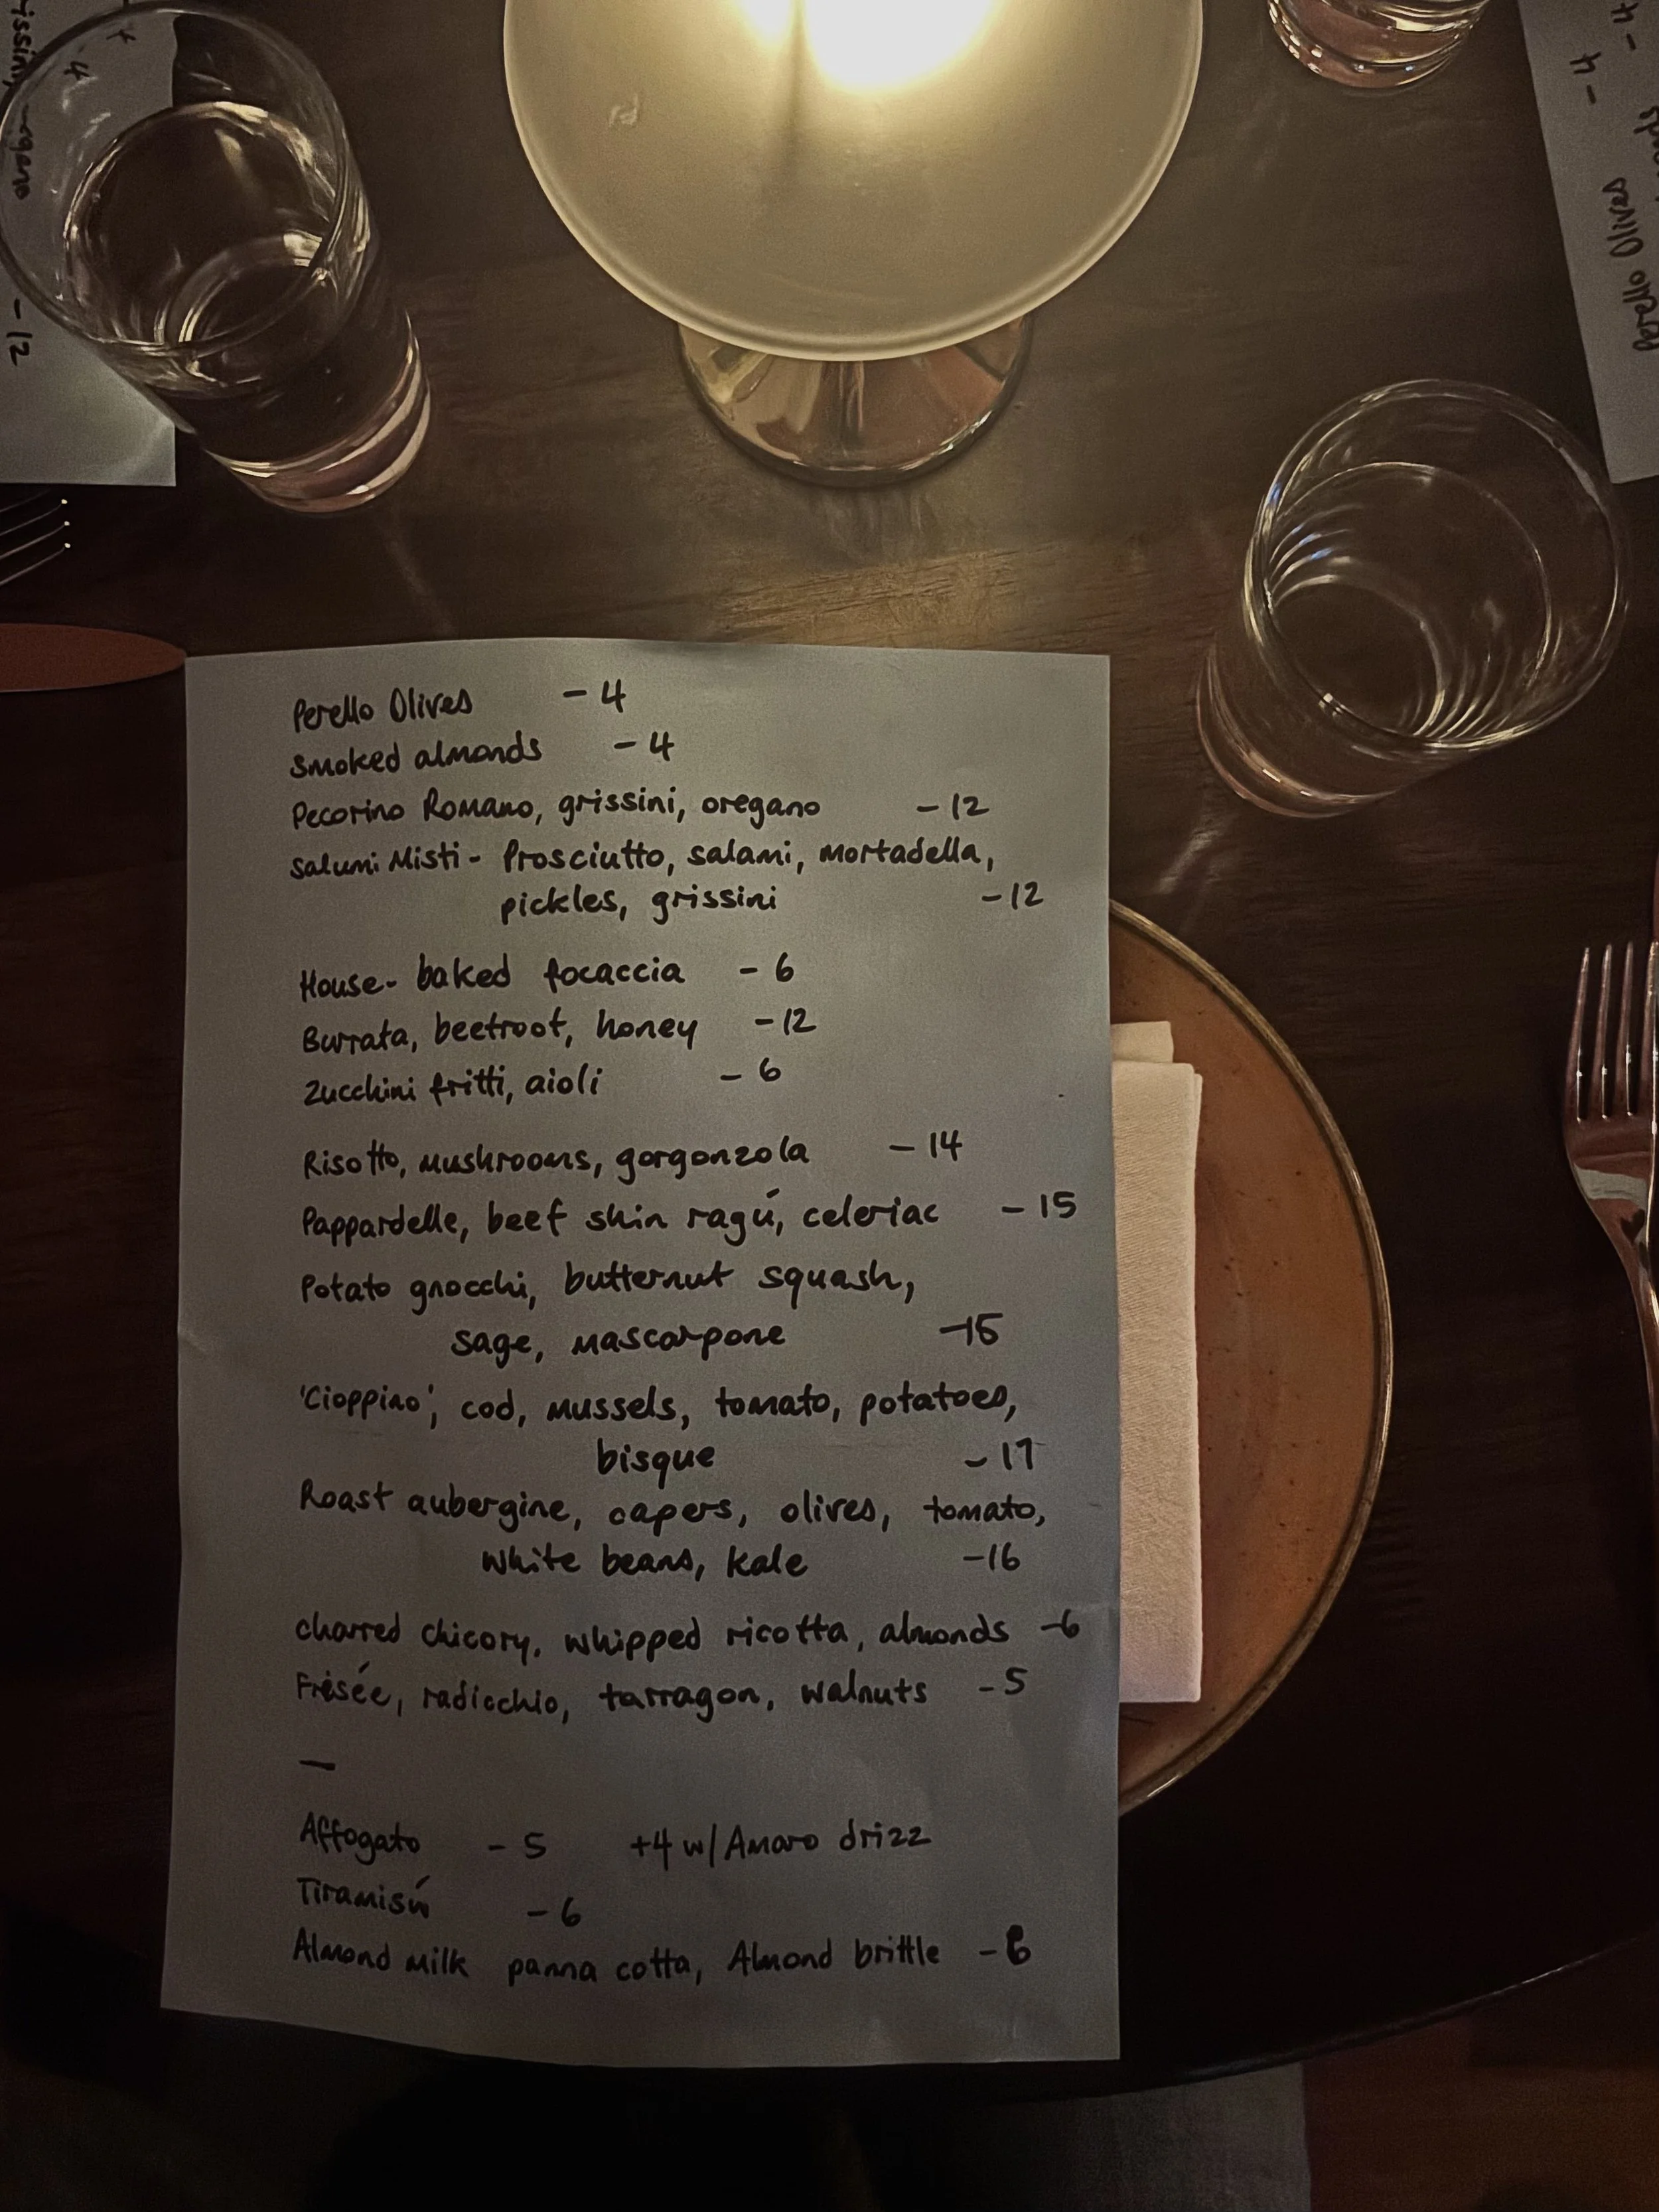 Perello Olives - 4
Smoked almonds - 4
Pecorino Romano, grissini, oregano - 12
Salumi Misti - Prosciutto, salami, mortadella,
pickles, grissini - 12
House-baked focaccia - 6
Burrata, beetroot, honey - 12
Zucchini fritti, aioli - 6
Risotto, mushrooms, gorgonzola - 14
Pappardelle, beef shin ragú, celeriac - 15
Potato gnocchi, butternut squash,
sage, mascarpone - 15
'Cioppino', cod, mussels, tomato, potatoes,
bisque - 17
Roast aubergine, capers, olives, tomato,
white beans, kale - 16
charred chicory, whipped ricotta, almonds - 6
Frisée, radicchio, tarragon, walnuts - 5
—
Affogato - 5 +4 w/ Amaro drizz
Tiramisú - 6
Almond milk panna cotta, Almond brittle -
- 12
- 4
- 4
Perello Olives